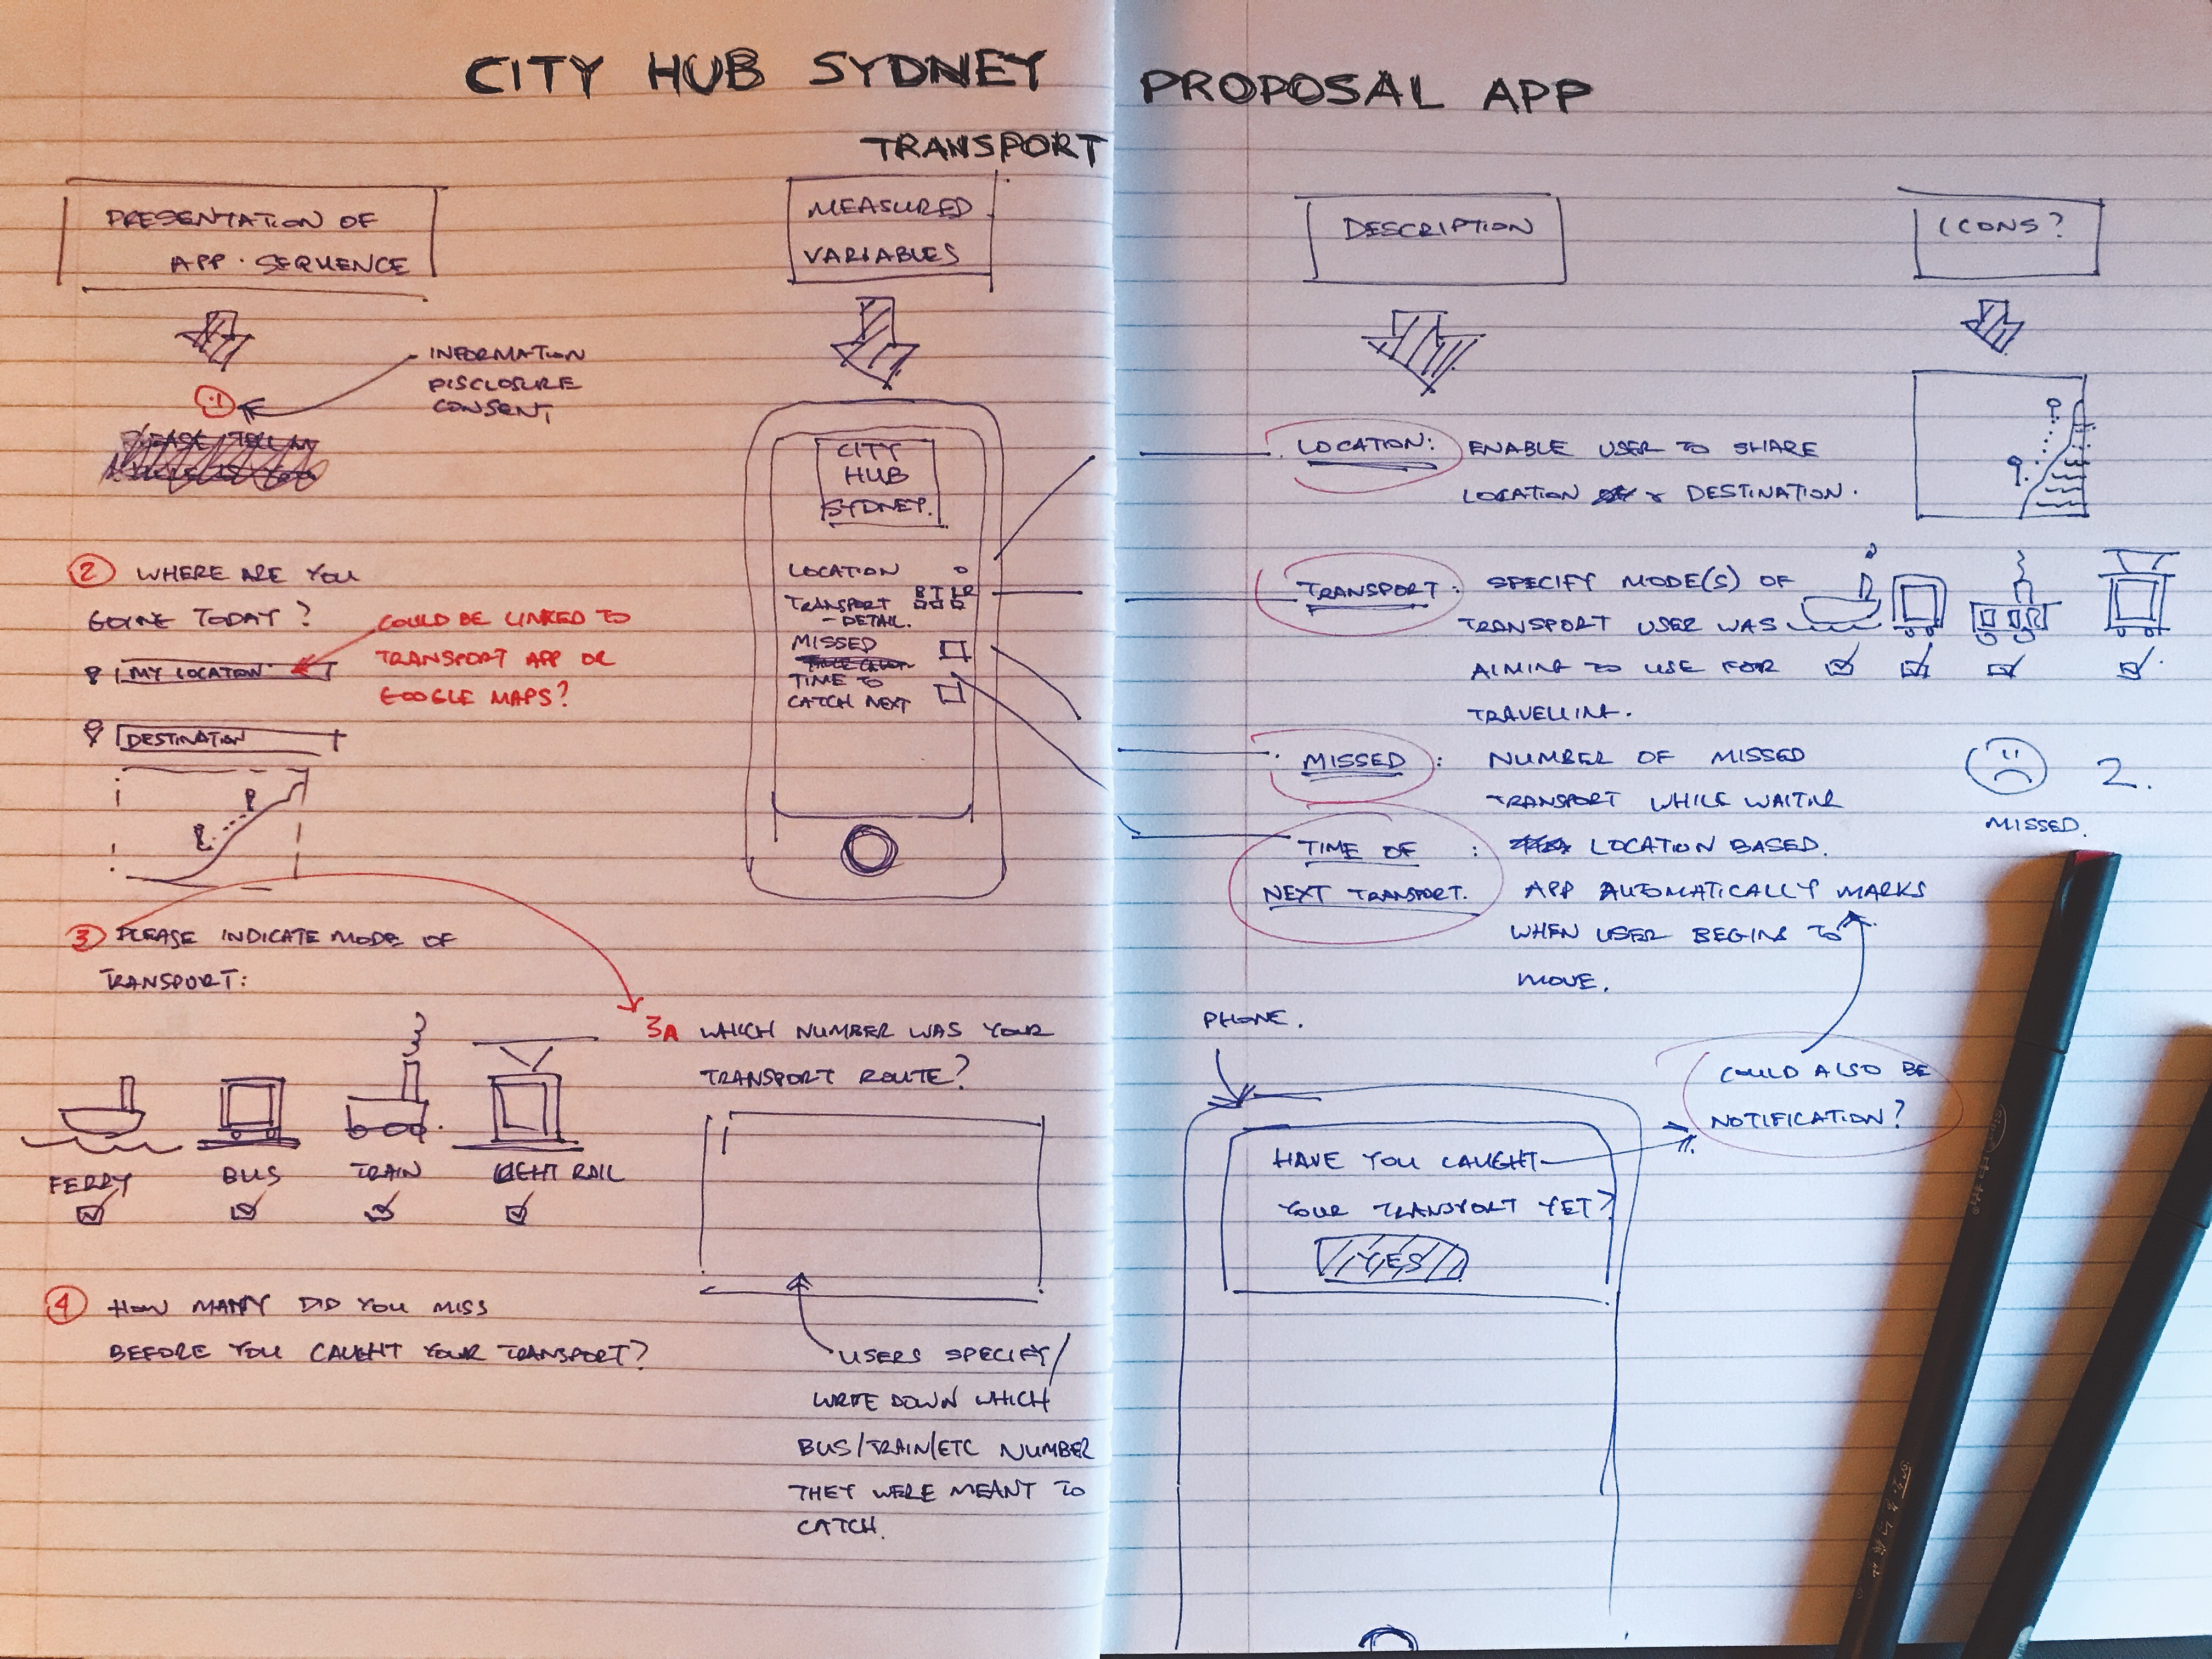 CITY HUB SYDNEY PROPOSAL APP
TRANSPORT
PRESENTATION OF
APP. SEQUENCE
MEASURED
VARIABLES
DESCRIPTION
ICONS?
1
INFORMATION
DISCLOSURE
CONSENT,
2 WHERE ARE YOU
GOING TODAY?
MY LOCATION
DESTINATION
COULD BE LINKED TO
TRANSPORT APP OR
GOOGLE MAPS?
3 PLEASE INDICATE MODE OF
TRANSPORT:
FERRY
BUS
TRAIN
LIGHT RAIL
3A WHICH NUMBER WAS YOUR
TRANSPORT ROUTE?
USERS SPECIFY/
WRITE DOWN WHICH
BUS/TRAIN/ETC NUMBER
THEY WERE MEANT TO
CATCH.
4 HOW MANY DID YOU MISS
BEFORE YOU CAUGHT YOUR TRANSPORT?
CITY
HUB
SYDNEY.
LOCATION
TRANSPORT B T LR
- DETAIL.
MISSED
TIME TO
CATCH NEXT
LOCATION: ENABLE USER TO SHARE
LOCATION & DESTINATION.
TRANSPORT: SPECIFY MODE(S) OF
TRANSPORT USER WAS
AIMING TO USE FOR
TRAVELLING.
MISSED: NUMBER OF MISSED
TRANSPORT WHILE WAITING
2.
MISSED.
TIME OF : LOCATION BASED.
NEXT TRANSPORT. APP AUTOMATICALLY MARKS
WHEN USER BEGINS TO
MOVE.
PHONE.
COULD ALSO BE
NOTIFICATION?
HAVE YOU CAUGHT
YOUR TRANSPORT YET?
YES